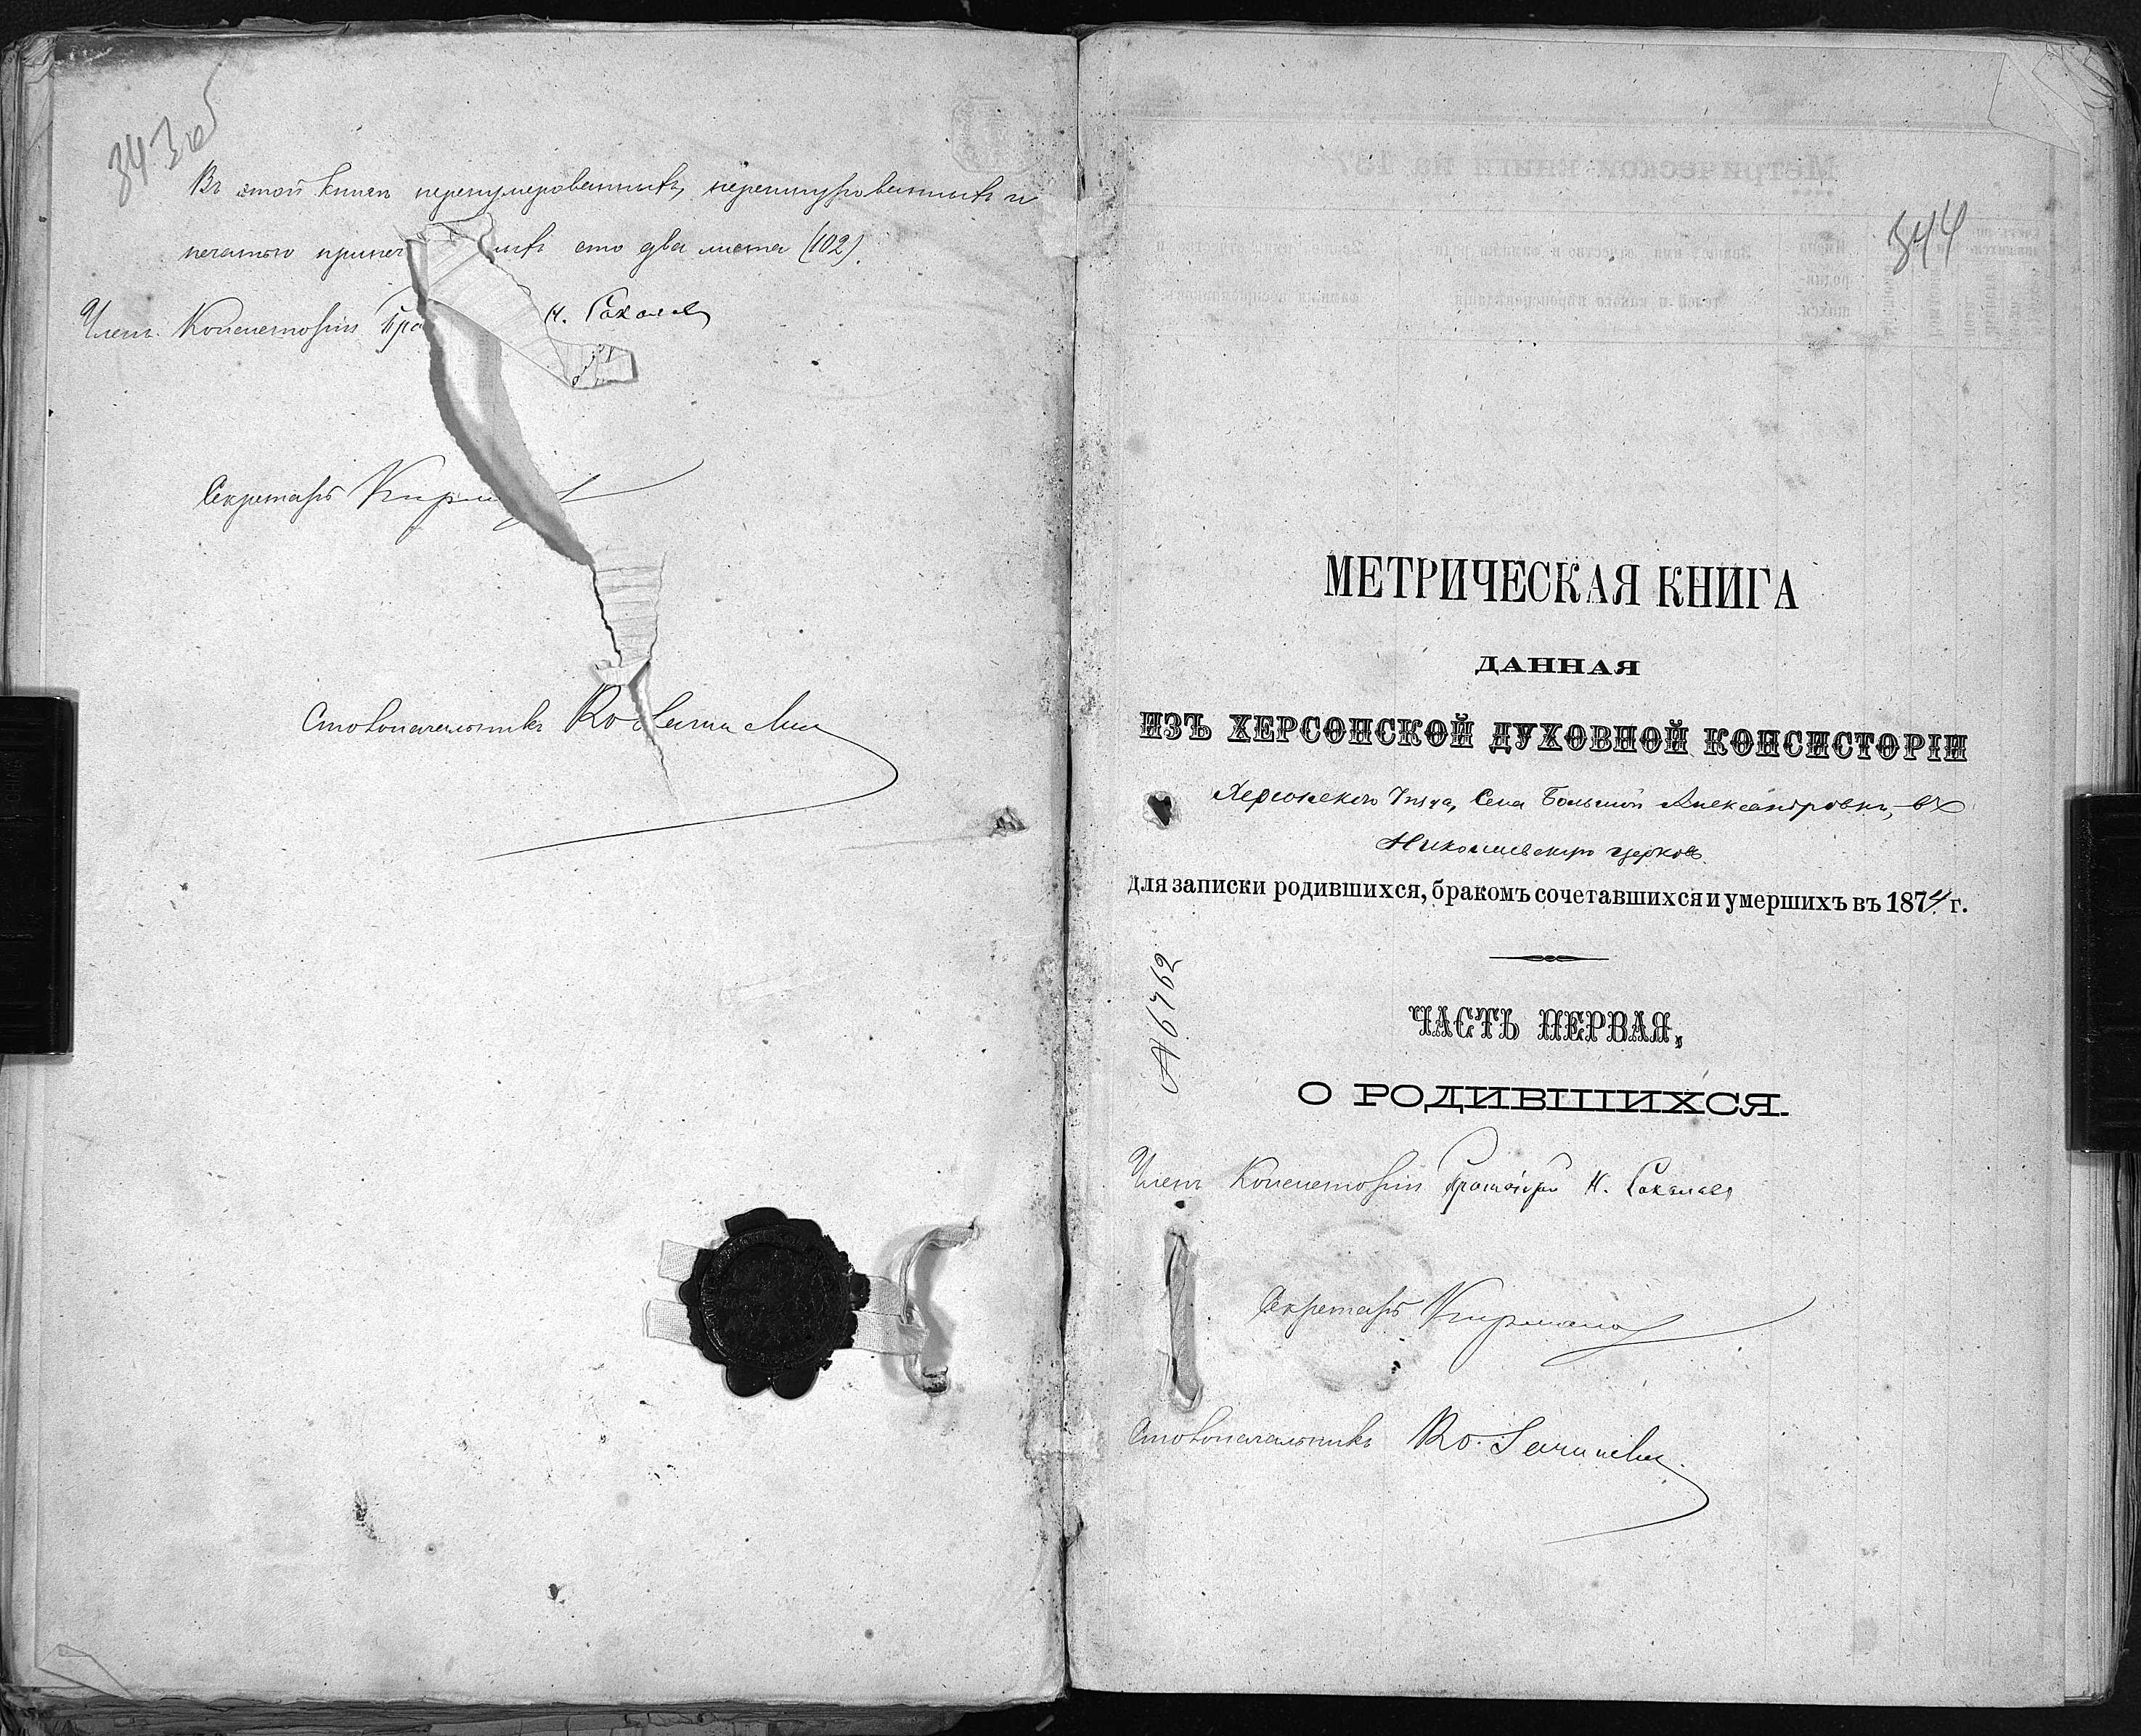 343 об
Въ этой книгѣ перенумерованныхъ, перешнурованныхъ и
печатью припеч ныхъ сто два листа (102).
Членъ Консисторіи Про Н. Соколовъ
Секретарь
Столоначальникъ
344
МЕТРИЧЕСКАЯ КНИГА
ДАННАЯ
ИЗЪ ХЕРСОНСКОЙ ДУХОВНОЙ КОНСИСТОРІИ
Херсонскаго Уѣзда, Села Большой Александровки, въ
Николаевскую церковь
для записки родившихся, бракомъ сочетавшихся и умершихъ въ 1874 г.
№ 6762
ЧАСТЬ ПЕРВАЯ,
О РОДИВШИХСЯ.
Членъ Консисторіи Протоіерей Н. Соколовъ
Секретарь
Столоначальникъ